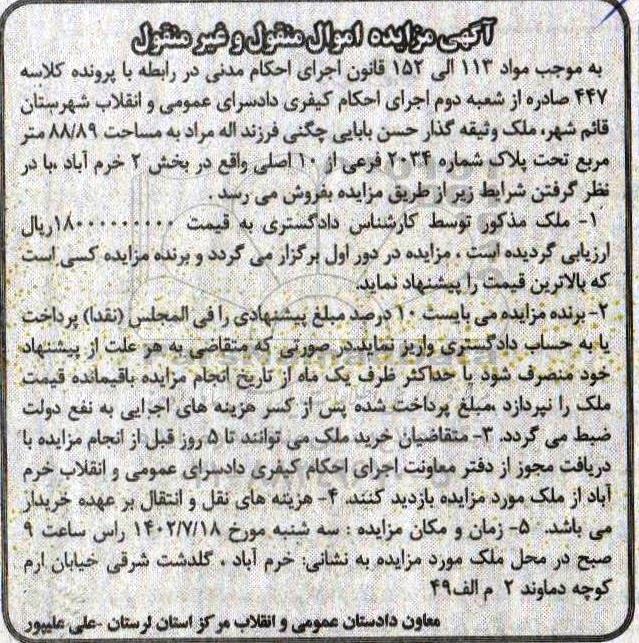 آگهی مزایده اموال منقول و غیر منقول
به موجب مواد ۱۱۳ الی ۱۵۲ قانون اجرای احکام مدنی در رابطه با پرونده کلاسه
۴۴۷ صادره از شعبه دوم اجرای احکام کیفری دادسرای عمومی و انقلاب شهرستان
قائم شهر، ملک وثیقه گذار حسن بابایی چگنی فرزند اله مراد به مساحت ۸۸/۸۹ متر
مربع تحت پلاک شماره ۲۰۳۴ فرعی از ۱۰ اصلی واقع در بخش ۲ خرم آباد ،با در
نظر گرفتن شرایط زیر از طریق مزایده بفروش می رسد .
۱- ملک مذکور توسط کارشناس دادگستری به قیمت ۱۸۰۰۰۰۰۰۰۰۰ریال
ارزیابی گردیده است ، مزایده در دور اول برگزار می گردد و برنده مزایده کسی است
که بالاترین قیمت را پیشنهاد نماید.
۲- برنده مزایده می بایست ۱۰ درصد مبلغ پیشنهادی را فی المجلس (نقدا) پرداخت
یا به حساب دادگستری واریز نماید.در صورتی که متقاضی به هر علت از پیشنهاد
خود منصرف شود یا حداکثر ظرف یک ماه از تاریخ انجام مزایده باقیمانده قیمت
ملک را نپردازد ،مبلغ پرداخت شده پس از کسر هزینه های اجرایی به نفع دولت
ضبط می گردد. ۳- متقاضیان خرید ملک می توانند تا ۵ روز قبل از انجام مزایده با
دریافت مجوز از دفتر معاونت اجرای احکام کیفری دادسرای عمومی و انقلاب خرم
آباد از ملک مورد مزایده بازدید کنند. ۴- هزینه های نقل و انتقال بر عهده خریدار
می باشد. ۵- زمان و مکان مزایده : سه شنبه مورخ ۱۴۰۲/۷/۱۸ راس ساعت ۹
صبح در محل ملک مورد مزایده به نشانی: خرم آباد ، گلدشت شرقی خیابان ارم
کوچه دماوند ۲ م الف۴۹
معاون دادستان عمومی و انقلاب مرکز استان لرستان -علی علیپور